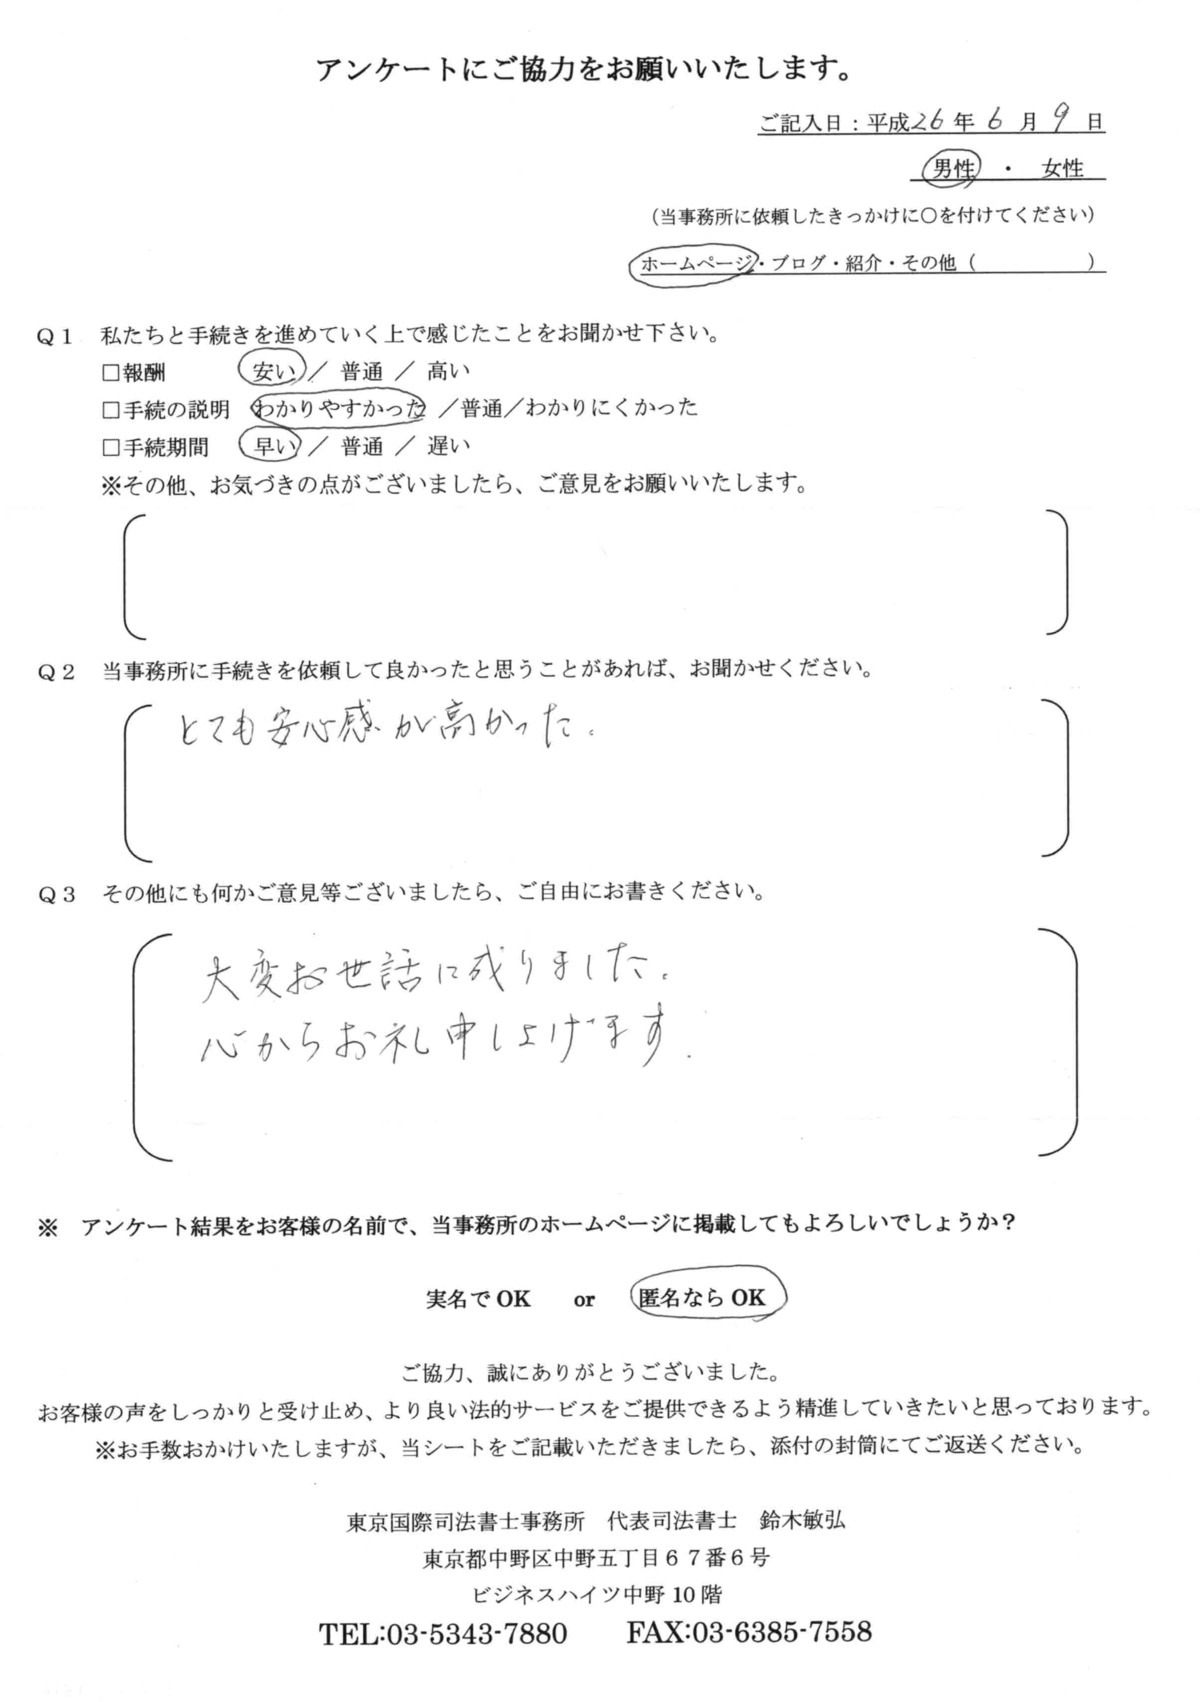 アンケートにご協力をお願いいたします。
ご記入日：平成26年6月9日
男性 ・ 女性
（当事務所に依頼したきっかけに○を付けてください）
ホームページ・ブログ・紹介・その他（　　　　　）
Q１　私たちと手続きを進めていく上で感じたことをお聞かせ下さい。
□報酬　安い ／ 普通 ／ 高い
□手続の説明　わかりやすかった ／普通／わかりにくかった
□手続期間　早い ／ 普通 ／ 遅い
※その他、お気づきの点がございましたら、ご意見をお願いいたします。
Q２　当事務所に手続きを依頼して良かったと思うことがあれば、お聞かせください。
とても安心感が高かった。
Q３　その他にも何かご意見等ございましたら、ご自由にお書きください。
大変お世話に成りました。
心からお礼申し上げます.
※　アンケート結果をお客様の名前で、当事務所のホームページに掲載してもよろしいでしょうか？
実名でOK　or　匿名ならOK
ご協力、誠にありがとうございました。
お客様の声をしっかりと受け止め、より良い法的サービスをご提供できるよう精進していきたいと思っております。
※お手数おかけいたしますが、当シートをご記載いただきましたら、添付の封筒にてご返送ください。
東京国際司法書士事務所　代表司法書士　鈴木敏弘
東京都中野区中野五丁目６７番６号
ビジネスハイツ中野 10 階
TEL:03-5343-7880　FAX:03-6385-7558